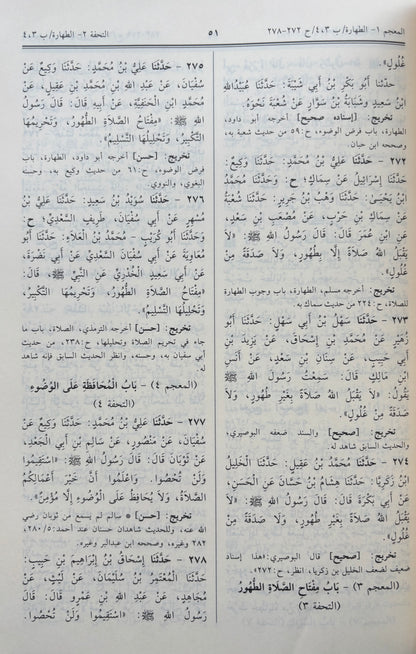 المعجم ١- الطهارة/ ب ٣، ٤/ ح ٢٧٢-٢٧٨
٥١
التحفة ٢- الطهارة/ ب ٣، ٤
غُلُولٍ».
حَدَّثَنَا أَبُو بَكْرِ بْنُ أَبِي شَيْبَةَ: حَدَّثَنَا عُبَيْدُاللهِ
ابْنُ سَعِيدٍ وَشَبَابَةُ بْنُ سَوَّارٍ عَنْ شُعْبَةَ نَحْوَهُ.
تخريج: [إسناده صحيح] أخرجه أبو داود،
الطهارة، باب فرض الوضوء، ح:٥٩ من حديث شعبة به،
وصححه ابن حبان.
٢٧٢ - حَدَّثَنَا عَلِيُّ بْنُ مُحَمَّدٍ: حَدَّثَنَا وَكِيعٌ:
حَدَّثَنَا إِسْرَائِيلُ عَنْ سِمَاكٍ؛ ح: وَحَدَّثَنَا مُحَمَّدُ
ابْنُ يَحْيَىٰ: حَدَّثَنَا وَهْبُ بْنُ جَرِيرٍ: حَدَّثَنَا شُعْبَةُ
عَنْ سِمَاكِ بْنِ حَرْبٍ، عَنْ مُصْعَبِ بْنِ سَعْدٍ،
عَنِ ابْنِ عُمَرَ قَالَ: قَالَ رَسُولُ اللهِ ﷺ: «لَا
يَقْبَلُ اللهُ صَلَاةً إِلَّا بِطُهُورٍ، وَلَا صَدَقَةً مِنْ
غُلُولٍ».
تخريج: أخرجه مسلم، الطهارة، باب وجوب الطهارة
للصلاة، ح:٢٢٤ من حديث سماك به.
٢٧٣ - حَدَّثَنَا سَهْلُ بْنُ أَبِي سَهْلٍ: حَدَّثَنَا أَبُو
زُهَيْرٍ عَنْ مُحَمَّدِ بْنِ إِسْحَاقَ، عَنْ يَزِيدَ بْنِ
أَبِي حَبِيبٍ، عَنْ سِنَانِ بْنِ سَعْدٍ، عَنْ أَنَسِ
ابْنِ مَالِكٍ قَالَ: سَمِعْتُ رَسُولَ اللهِ ﷺ يَقُولُ:
«لَا يَقْبَلُ اللهُ صَلَاةً بِغَيْرِ طُهُورٍ، وَلَا
صَدَقَةً مِنْ غُلُولٍ».
تخريج: [صحيح] والسند ضعفه البوصيري،
والحديث السابق شاهد له.
٢٧٤ - حَدَّثَنَا مُحَمَّدُ بْنُ عَقِيلٍ: حَدَّثَنَا الْخَلِيلُ
ابْنُ زَكَرِيَّا: حَدَّثَنَا هِشَامُ بْنُ حَسَّانَ عَنِ الْحَسَنِ،
عَنْ أَبِي بَكْرَةَ قَالَ: قَالَ رَسُولُ اللهِ ﷺ: «لَا
يَقْبَلُ اللهُ صَلَاةً بِغَيْرِ طُهُورٍ، وَلَا صَدَقَةً مِنْ
غُلُولٍ».
تخريج: [صحيح] قال البوصيري:«هذا إسناد
ضعيف لضعف الخليل بن زكريا، انظر، ح:٢٧٢».
(المعجم ٣) - بَابُ مِفْتَاحِ الصَّلَاةِ الطُّهُورُ
(التحفة ٣)
٢٧٥ - حَدَّثَنَا عَلِيُّ بْنُ مُحَمَّدٍ: حَدَّثَنَا وَكِيعٌ عَنْ
سُفْيَانَ، عَنْ عَبْدِ اللهِ بْنِ مُحَمَّدِ بْنِ عَقِيلٍ، عَنْ
مُحَمَّدِ ابْنِ الْحَنَفِيَّةِ، عَنْ أَبِيهِ قَالَ: قَالَ رَسُولُ
اللهِ ﷺ: «مِفْتَاحُ الصَّلَاةِ الطُّهُورُ، وَتَحْرِيمُهَا
التَّكْبِيرُ، وَتَحْلِيلُهَا التَّسْلِيمُ».
تخريج: [حسن] أخرجه أبو داود، الطهارة، باب
فرض الوضوء، ح:٦١ من حديث وكيع به، وحسنه
البغوي، والنووي.
٢٧٦ - حَدَّثَنَا سُوَيْدُ بْنُ سَعِيدٍ: حَدَّثَنَا عَلِيُّ بْنُ
مُسْهِرٍ عَنْ أَبِي سُفْيَانَ، طَرِيفٍ السَّعْدِيِّ؛ ح:
وَحَدَّثَنَا أَبُو كُرَيْبٍ - مُحَمَّدُ بْنُ الْعَلَاءِ: حَدَّثَنَا أَبُو
مُعَاوِيَةَ عَنْ أَبِي سُفْيَانَ السَّعْدِيِّ عَنْ أَبِي نَضْرَةَ،
عَنْ أَبِي سَعِيدٍ الْخُدْرِيِّ عَنِ النَّبِيِّ ﷺ، قَالَ:
«مِفْتَاحُ الصَّلَاةِ الطُّهُورُ، وَتَحْرِيمُهَا التَّكْبِيرُ،
وَتَحْلِيلُهَا التَّسْلِيمُ».
تخريج: [حسن] أخرجه الترمذي، الصلاة، باب ما
جاء في تحريم الصلاة وتحليلها، ح:٢٣٨، من حديث
أبي سفيان به، وحسنه، وانظر الحديث السابق فإنه شاهد
له.
(المعجم ٤) - بَابُ الْمُحَافَظَةِ عَلَى الْوُضُوءِ
(التحفة ٤)
٢٧٧ - حَدَّثَنَا عَلِيُّ بْنُ مُحَمَّدٍ: حَدَّثَنَا وَكِيعٌ عَنْ
سُفْيَانَ، عَنْ مَنْصُورٍ، عَنْ سَالِمِ بْنِ أَبِي الْجَعْدِ،
عَنْ ثَوْبَانَ قَالَ: قَالَ رَسُولُ اللهِ ﷺ: «اسْتَقِيمُوا
وَلَنْ تُحْصُوا. وَاعْلَمُوا أَنَّ خَيْرَ أَعْمَالِكُمُ
الصَّلَاةُ، وَلَا يُحَافِظُ عَلَى الْوُضُوءِ إِلَّا مُؤْمِنٌ».
تخريج: [حسن] * سالم لم يسمع من ثوبان رضي
الله عنه، وللحديث شاهدان حسنان عند أحمد:٥/ ٢٨٠،
٢٨٢ وغيره، وصححه ابن عبدالبر وغيره.
٢٧٨ - حَدَّثَنَا إِسْحَاقُ بْنُ إِبْرَاهِيمَ بْنِ حَبِيبٍ:
حَدَّثَنَا الْمُعْتَمِرُ بْنُ سُلَيْمَانَ، عَنْ لَيْثٍ، عَنْ
مُجَاهِدٍ، عَنْ عَبْدِ اللهِ بْنِ عَمْرٍو قَالَ: قَالَ
رَسُولُ اللهِ ﷺ: «اسْتَقِيمُوا وَلَنْ تُحْصُوا.